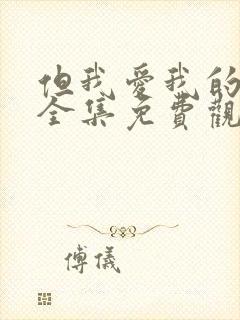 但我愛我的
全集免費觀
傅儀